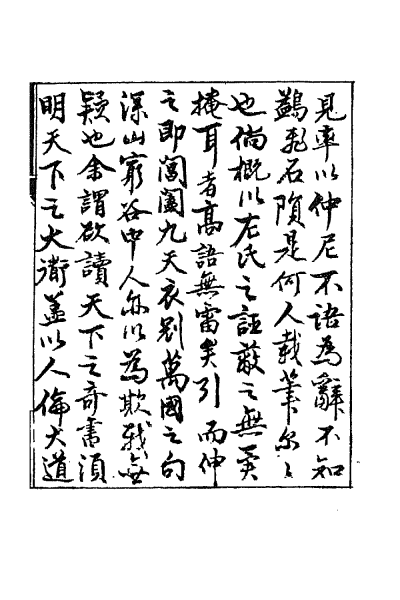 見率以仲尼不語為辭不知
鷁飛石隕是何人載筆爾爾
也倘概以左氏之誣蔽之無異
掩耳者高語無雷矣引而伸
之即閶闔九天衣冠萬國之句
深山窮谷中人亦以為欺我無
疑也余謂欲讀天下之奇書須
明天下之大衛蓋以人倫大道